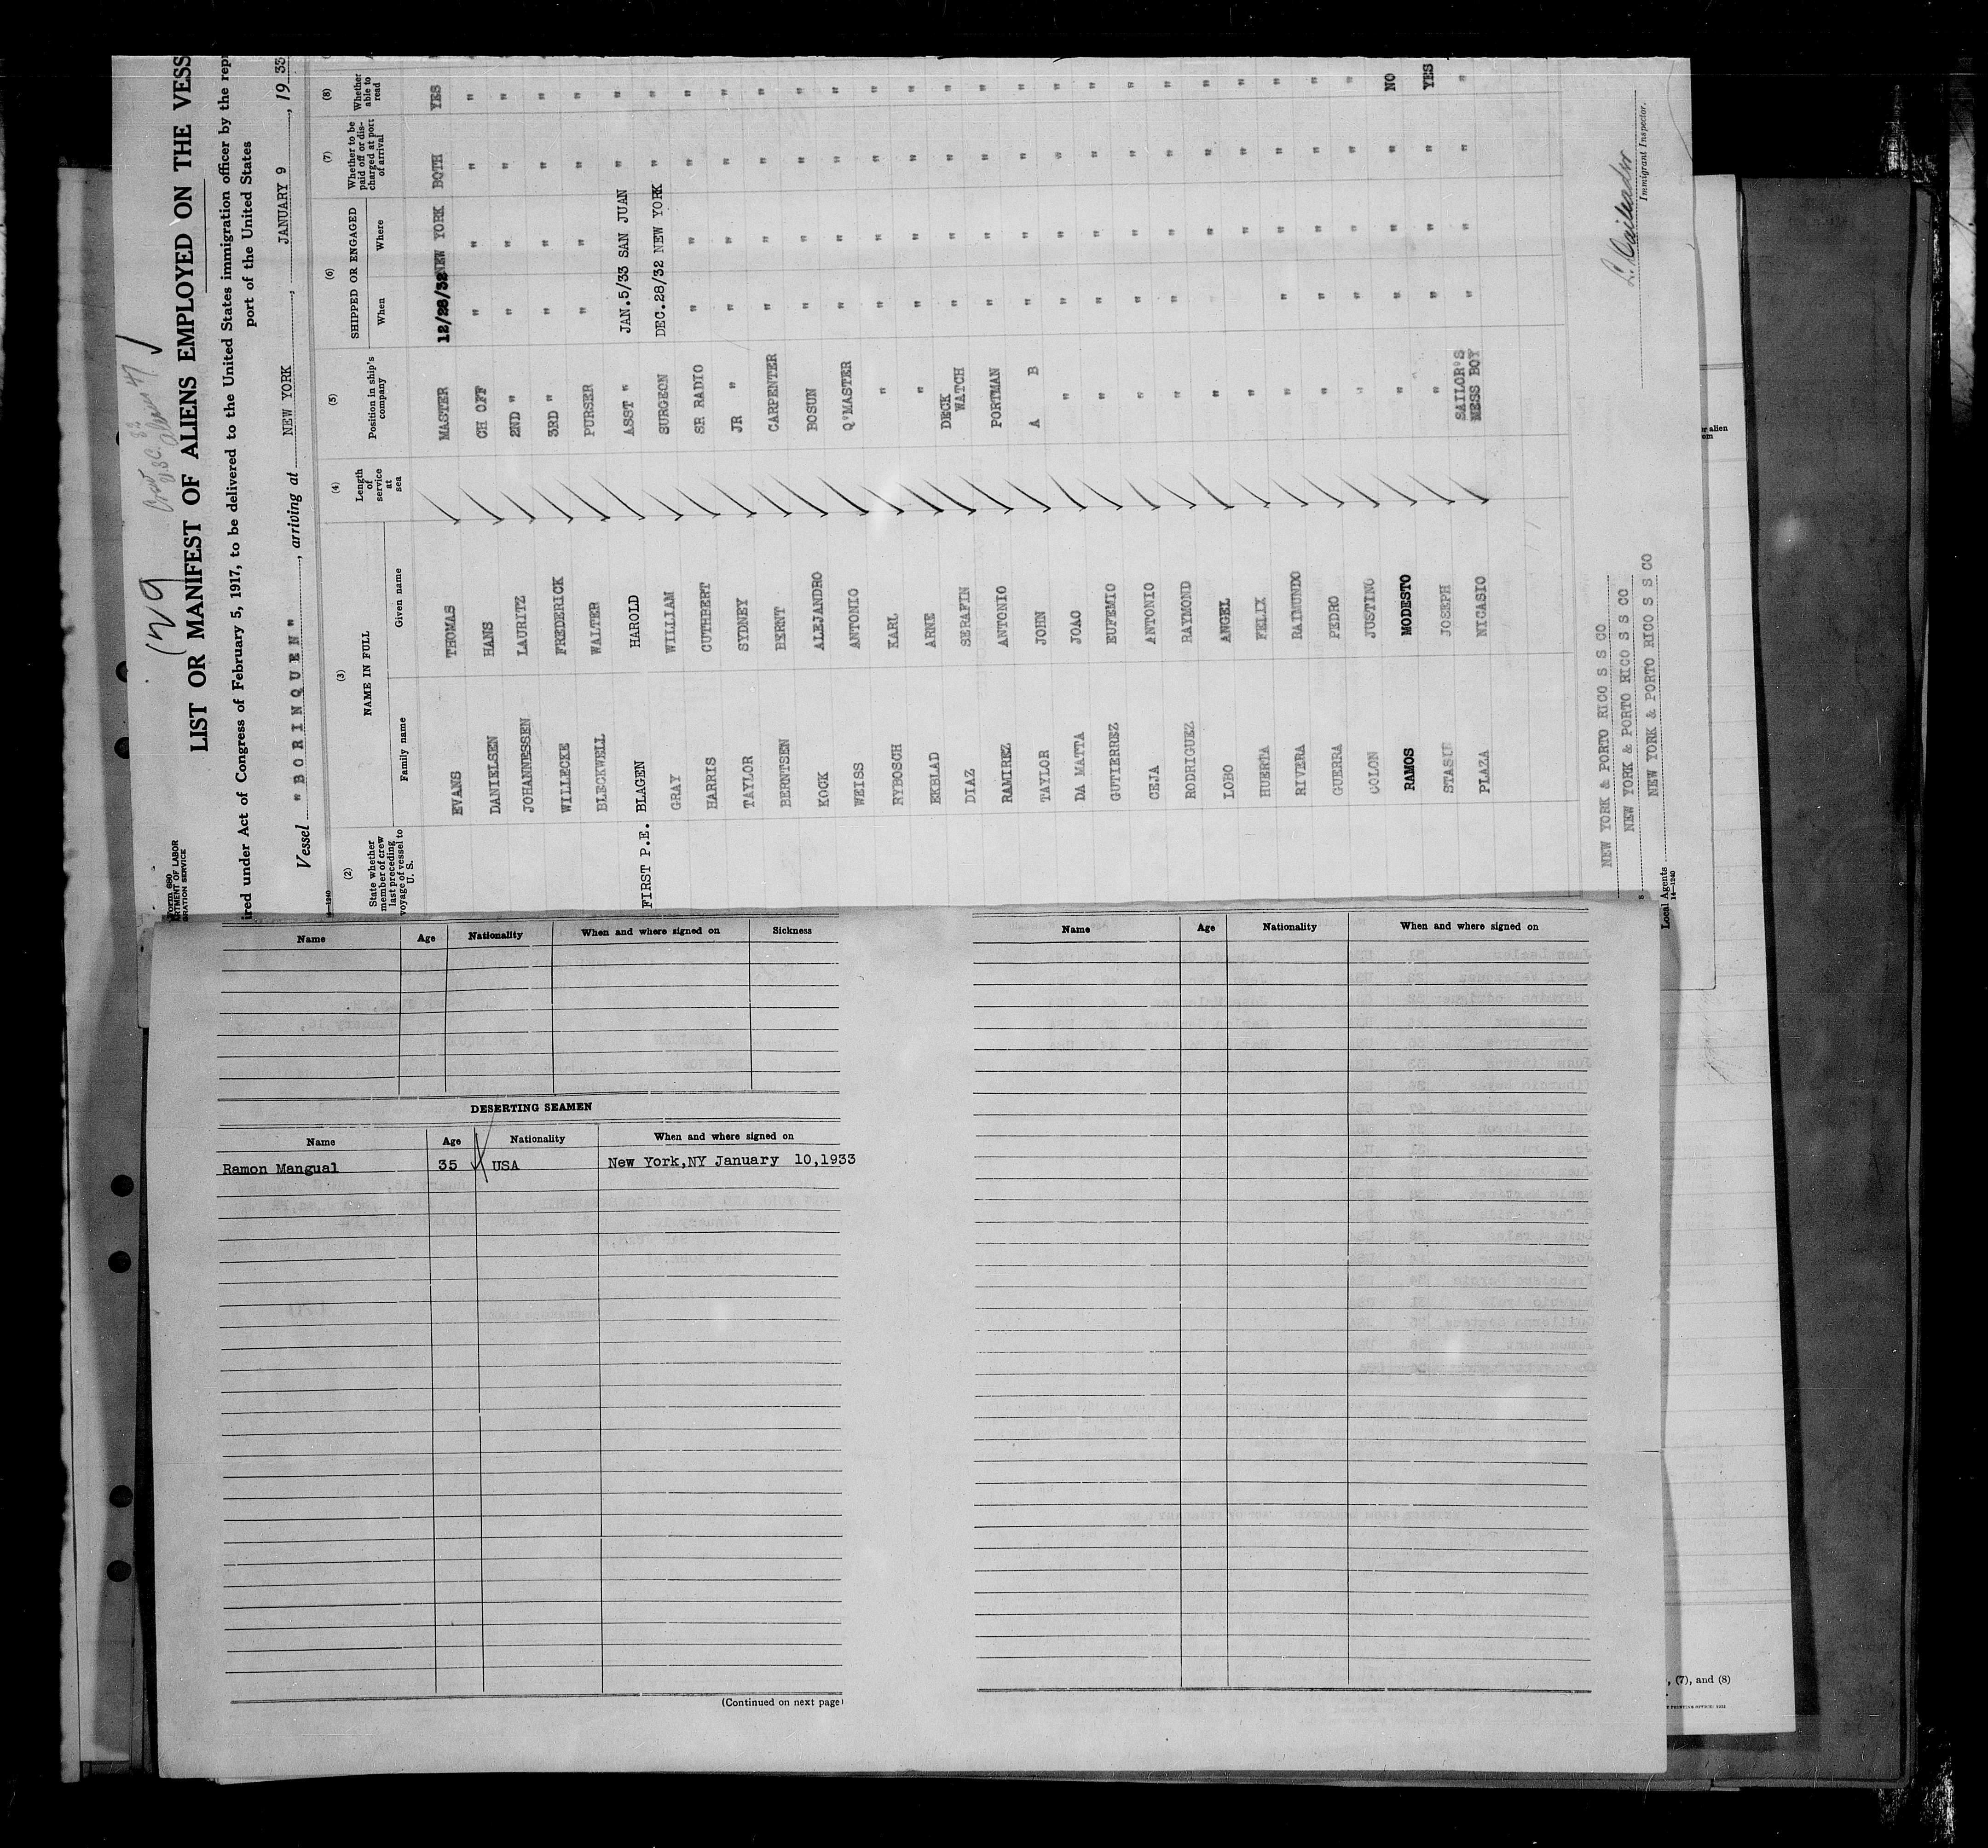 (29
LIST OR MANIFEST OF ALIENS EMPLOYED ON THE VESS
Form 680
ARTMENT OF LABOR
GRATION SERVICE
ired under Act of Congress of February 5, 1917, to be delivered to the United States immigration officer by the repr
port of the United States
Vessel "BORINQUEN", arriving at NEW YORK, JANUARY 9, 1933
14—1240
(2) (3) (4) (5) (6) (7) (8)
State whether member of crew last preceding voyage of vessel to U. S. NAME IN FULL Family name Given name Length of service at sea Position in ship's company SHIPPED OR ENGAGED When Where Whether to be paid off or discharged at port of arrival Whether able to read
EVANS THOMAS MASTER 12/28/32 NEW YORK BOTH YES
DANIELSEN HANS CH OFF " " " "
JOHANNESSEN LAURITZ 2ND " " " " "
WILLECKE FREDERICK 3RD " " " " "
BLECKWELL WALTER PURSER " " " "
FIRST P.E. BLAGEN HAROLD ASST " JAN.5/33 SAN JUAN " "
GRAY WILLIAM SURGEON DEC.28/32 NEW YORK " "
HARRIS CUTHBERT SR RADIO " " " "
TAYLOR SYDNEY JR " " " " "
BERNTSEN BERNT CARPENTER " " " "
KOCK ALEJANDRO BOSUN " " " "
WEISS ANTONIO Q'MASTER " " " "
RYBOSCH KARL " " " " "
EKBLAD ARNE " " " " "
DIAZ SERAFIN DECK WATCH " " " "
RAMIREZ ANTONIO PORTMAN " " " "
TAYLOR JOHN A B " " " "
DA MATTA JOAO " " " " "
GUTIERREZ EUFEMIO " " " " "
CEJA ANTONIO " " " " "
RODRIGUEZ RAYMOND " " " " "
LOBO ANGEL " " " "
HUERTA FELIX " " " "
RIVERA RAIMUNDO " " " " "
GUERRA PEDRO " " " " "
COLON JUSTINO " " " " "
RAMOS MODESTO " " " " NO
JOSEPH " " " " YES
PLAZA NICASIO SAILOR'S MESS BOY " " " "
NEW YORK & PORTO RICO S S CO
NEW YORK & PORTO RICO S S CO
NEW YORK & PORTO RICO S S CO
Local Agents
14—1240
Immigrant Inspector.
Name Age Nationality When and where signed on Sickness
DESERTING SEAMEN
Name Age Nationality When and where signed on
Ramon Mangual 35 USA New York,NY January 10,1933
(Continued on next page)
Name Age Nationality When and where signed on
or alien
, (7), and (8)